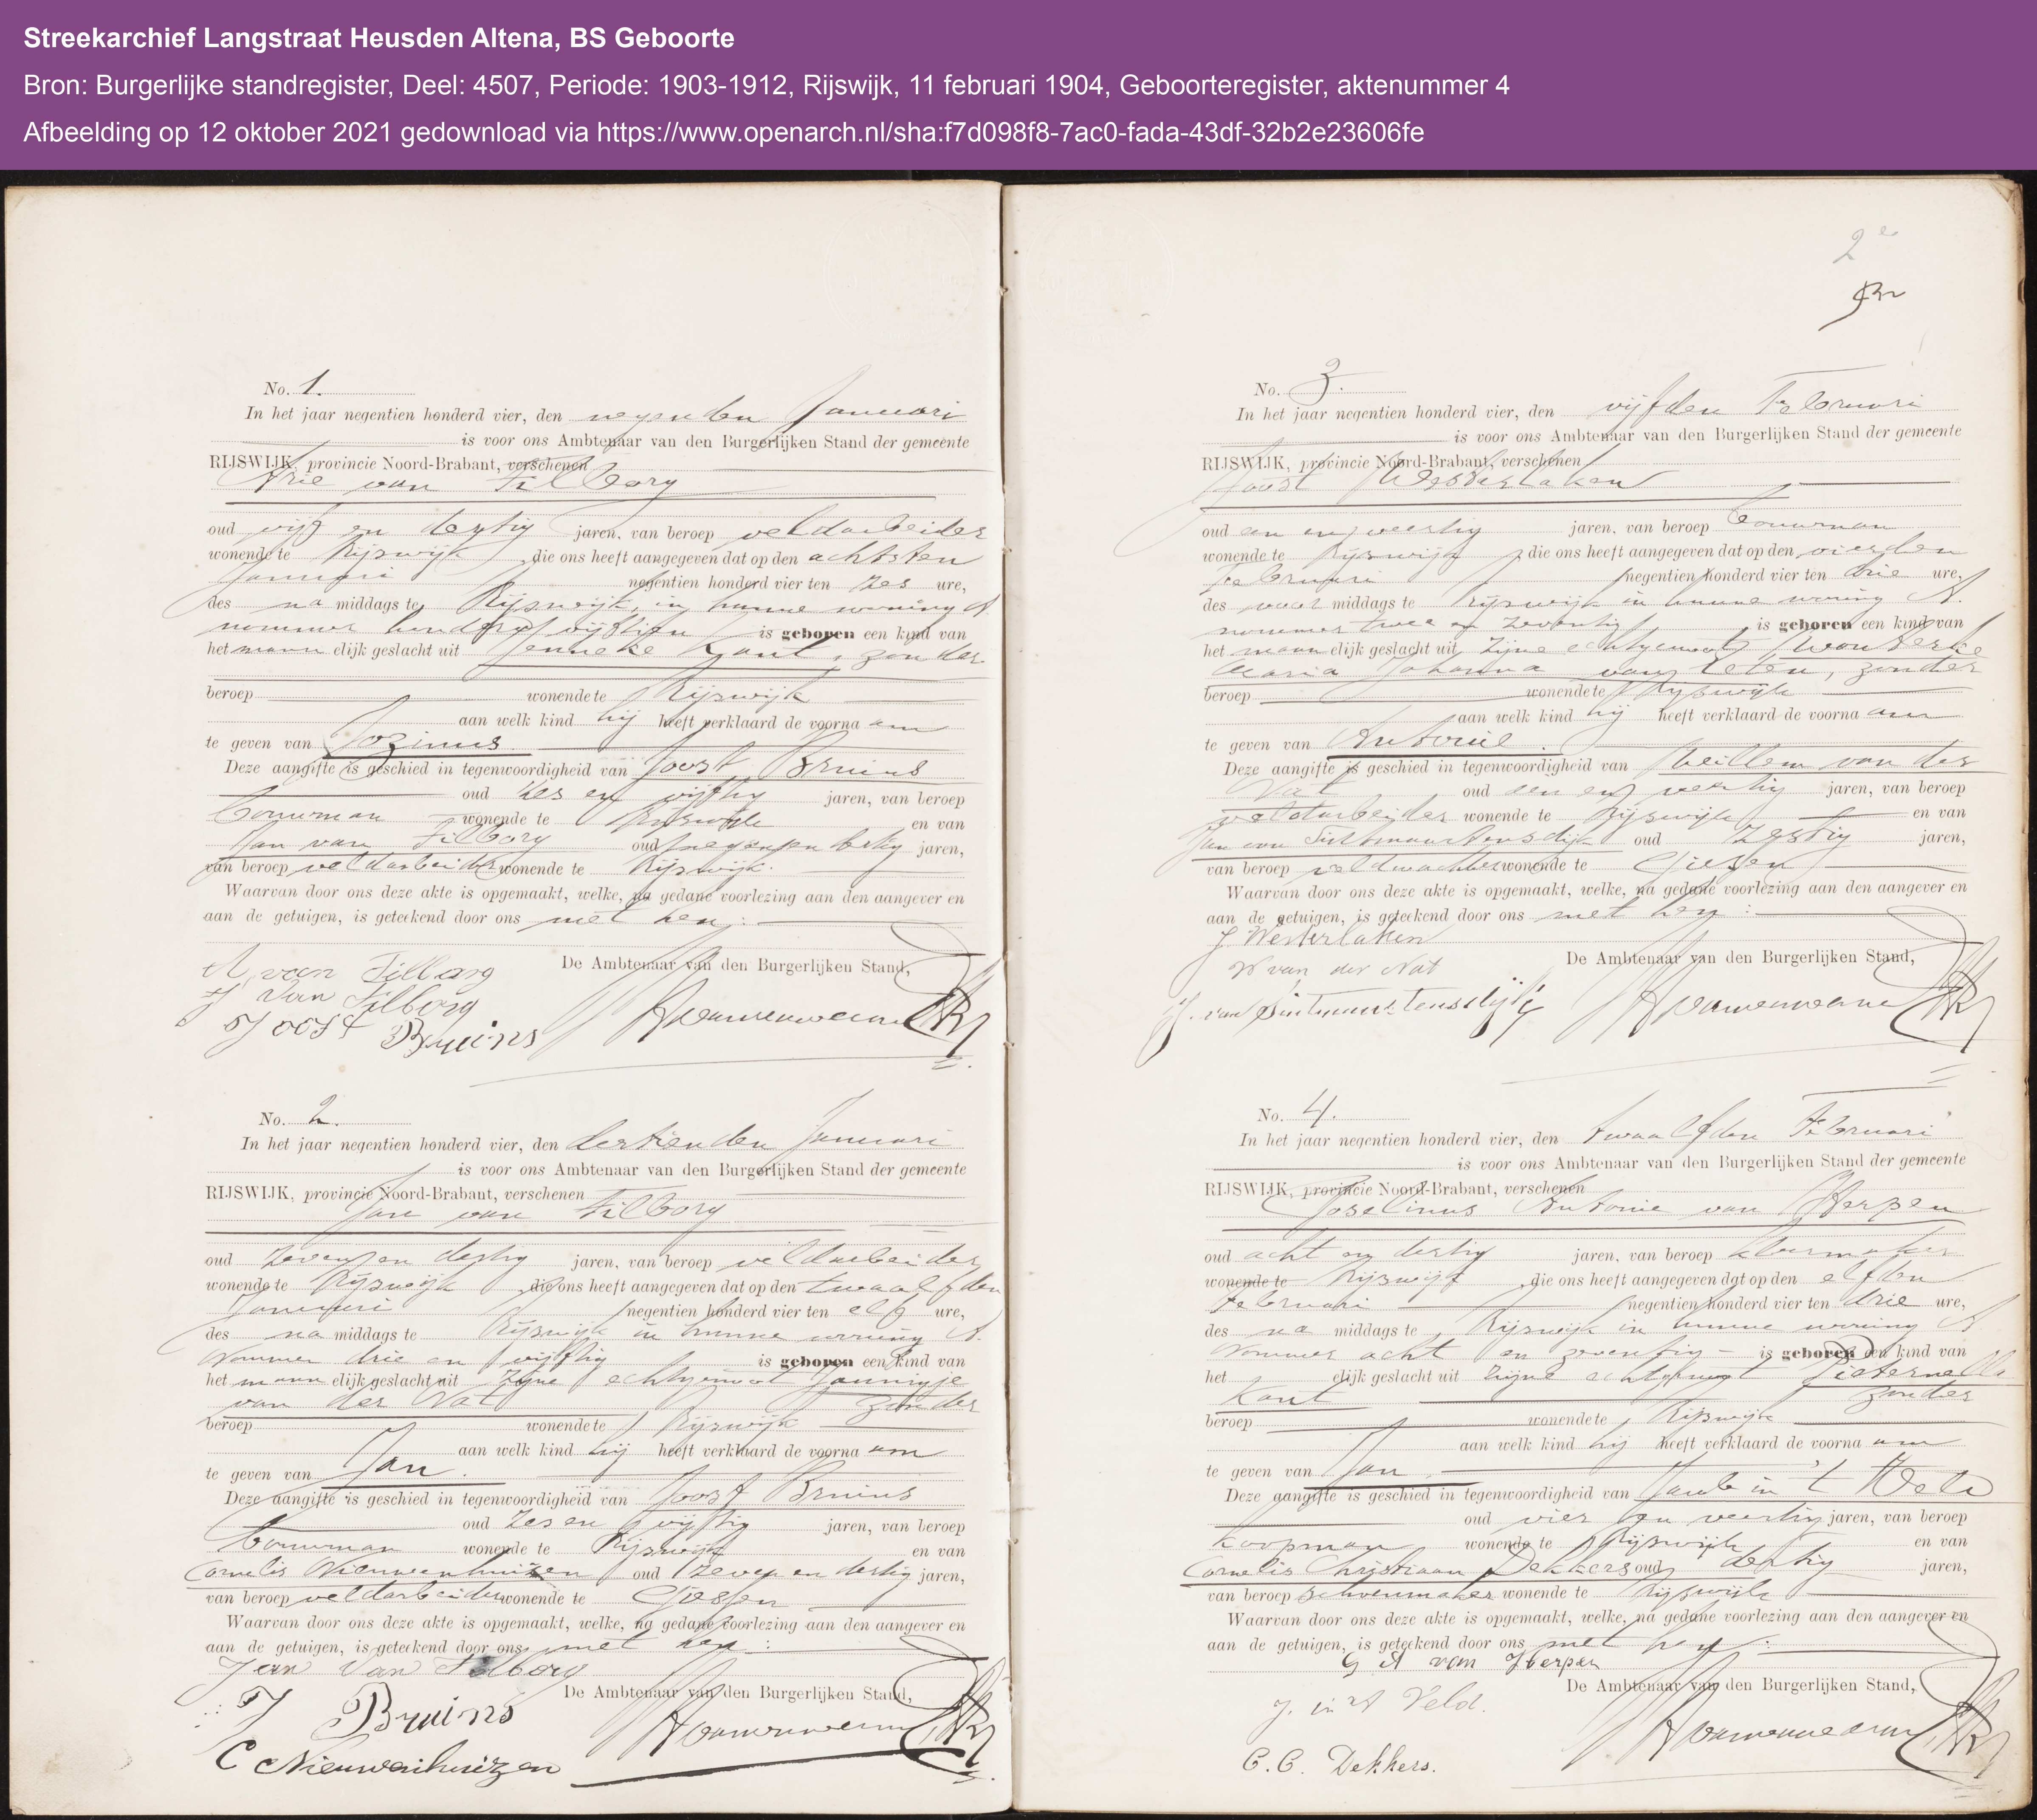 Streekarchief Langstraat Heusden Altena, BS Geboorte
Bron: Burgerlijke standregister, Deel: 4507, Periode: 1903-1912, Rijswijk, 11 februari 1904, Geboorteregister, aktenummer 4
Afbeelding op 12 oktober 2021 gedownload via https://www.openarch.nl/sha:f7d098f8-7ac0-fada-43df-32b2e23606fe
No. 1.
In het jaar negentien honderd vier, den negenden Januari
is voor ons Ambtenaar van den Burgerlijken Stand der gemeente
RIJSWIJK, provincie Noord-Brabant, verschenen
Arie van Tilborg
oud vijf en dertig jaren, van beroep veldarbeider
wonende te Rijswijk, die ons heeft aangegeven dat op den achtsten
Januari negentien honderd vier ten zes ure,
des na middags te Rijswijk, in hunne woning A.
nommer honderd vijftien is geboren een kind van
het mannelijk geslacht uit Jenneke Kant, zonder
beroep wonende te Rijswijk
aan welk kind hij heeft verklaard de voornaam
te geven van Jozinus.
Deze aangifte is geschied in tegenwoordigheid van Joost Bruins
oud zes en vijftig jaren, van beroep
bouwman wonende te Rijswijk en van
Jan van Tilborg oud negen en dertig jaren,
van beroep veldarbeider wonende te Rijswijk.
Waarvan door ons deze akte is opgemaakt, welke, na gedane voorlezing aan den aangever en
aan de getuigen, is geteekend door ons met hen:
De Ambtenaar van den Burgerlijken Stand,
A van Tilborg
J van Tilborg
Joost Bruins
No. 2.
In het jaar negentien honderd vier, den dertienden Januari
is voor ons Ambtenaar van den Burgerlijken Stand der gemeente
RIJSWIJK, provincie Noord-Brabant, verschenen
Jan van Tilborg
oud zeven en dertig jaren, van beroep veldarbeider
wonende te Rijswijk, die ons heeft aangegeven dat op den twaalfden
Januari negentien honderd vier ten elf ure,
des na middags te Rijswijk in hunne woning A.
Nommer drie en vijftig is geboren een kind van
het mannelijk geslacht uit zijne echtgenoot Jannigje
van der Nat zonder
beroep wonende te Rijswijk
aan welk kind hij heeft verklaard de voornaam
te geven van Jan.
Deze aangifte is geschied in tegenwoordigheid van Joost Bruins
oud zes en vijftig jaren, van beroep
bouwman wonende te Rijswijk en van
Cornelis Nieuwenhuizen oud zeven en dertig jaren,
van beroep veldarbeider wonende te Giessen
Waarvan door ons deze akte is opgemaakt, welke, na gedane voorlezing aan den aangever en
aan de getuigen, is geteekend door ons met hen:
Jan van Tilborg
De Ambtenaar van den Burgerlijken Stand,
J Bruins
C Nieuwenhuizen
2e
No. 3.
In het jaar negentien honderd vier, den vijfden Februari
is voor ons Ambtenaar van den Burgerlijken Stand der gemeente
RIJSWIJK, provincie Noord-Brabant, verschenen
Joost Westerlaken
oud een en veertig jaren, van beroep bouwman
wonende te Rijswijk, die ons heeft aangegeven dat op den vierden
Februari negentien honderd vier ten drie ure,
des voor middags te Rijswijk in hunne woning A.
nommer twee en zeventig is geboren een kind van
het mannelijk geslacht uit zijne echtgenoot Wouterke
Maria Johanna van Eeten, zonder
beroep wonende te Rijswijk
aan welk kind hij heeft verklaard de voornaam
te geven van Antonie.
Deze aangifte is geschied in tegenwoordigheid van Willem van der
Nat oud een en veertig jaren, van beroep
veldarbeider wonende te Rijswijk en van
Jan van Sintmaartensdijk oud zestig jaren,
van beroep veldwachter wonende te Giessen
Waarvan door ons deze akte is opgemaakt, welke, na gedane voorlezing aan den aangever en
aan de getuigen, is geteekend door ons met hen:
J Westerlaken
De Ambtenaar van den Burgerlijken Stand,
W van der Nat
J. van Sintmaartensdijk
No. 4.
In het jaar negentien honderd vier, den twaalfden Februari
is voor ons Ambtenaar van den Burgerlijken Stand der gemeente
RIJSWIJK, provincie Noord-Brabant, verschenen
Goselinus Antonie van Herpen
oud acht en dertig jaren, van beroep kleermaker
wonende te Rijswijk, die ons heeft aangegeven dat op den elfden
Februari negentien honderd vier ten drie ure,
des na middags te Rijswijk in hunne woning A
Nommer acht en zeventig is geboren een kind van
het elijk geslacht uit zijne echtgenoot Pieternella
Kant zonder
beroep wonende te Rijswijk
aan welk kind hij heeft verklaard de voornaam
te geven van Jan.
Deze aangifte is geschied in tegenwoordigheid van Jacob in 't Veld
oud vier en veertig jaren, van beroep
koopman wonende te Rijswijk en van
Cornelis Christiaan Dekkers oud dertig jaren,
van beroep schoenmaker wonende te Rijswijk
Waarvan door ons deze akte is opgemaakt, welke, na gedane voorlezing aan den aangever en
aan de getuigen, is geteekend door ons met hen:
G A van Herpen
De Ambtenaar van den Burgerlijken Stand,
J. in 't Veld.
C. C. Dekkers.